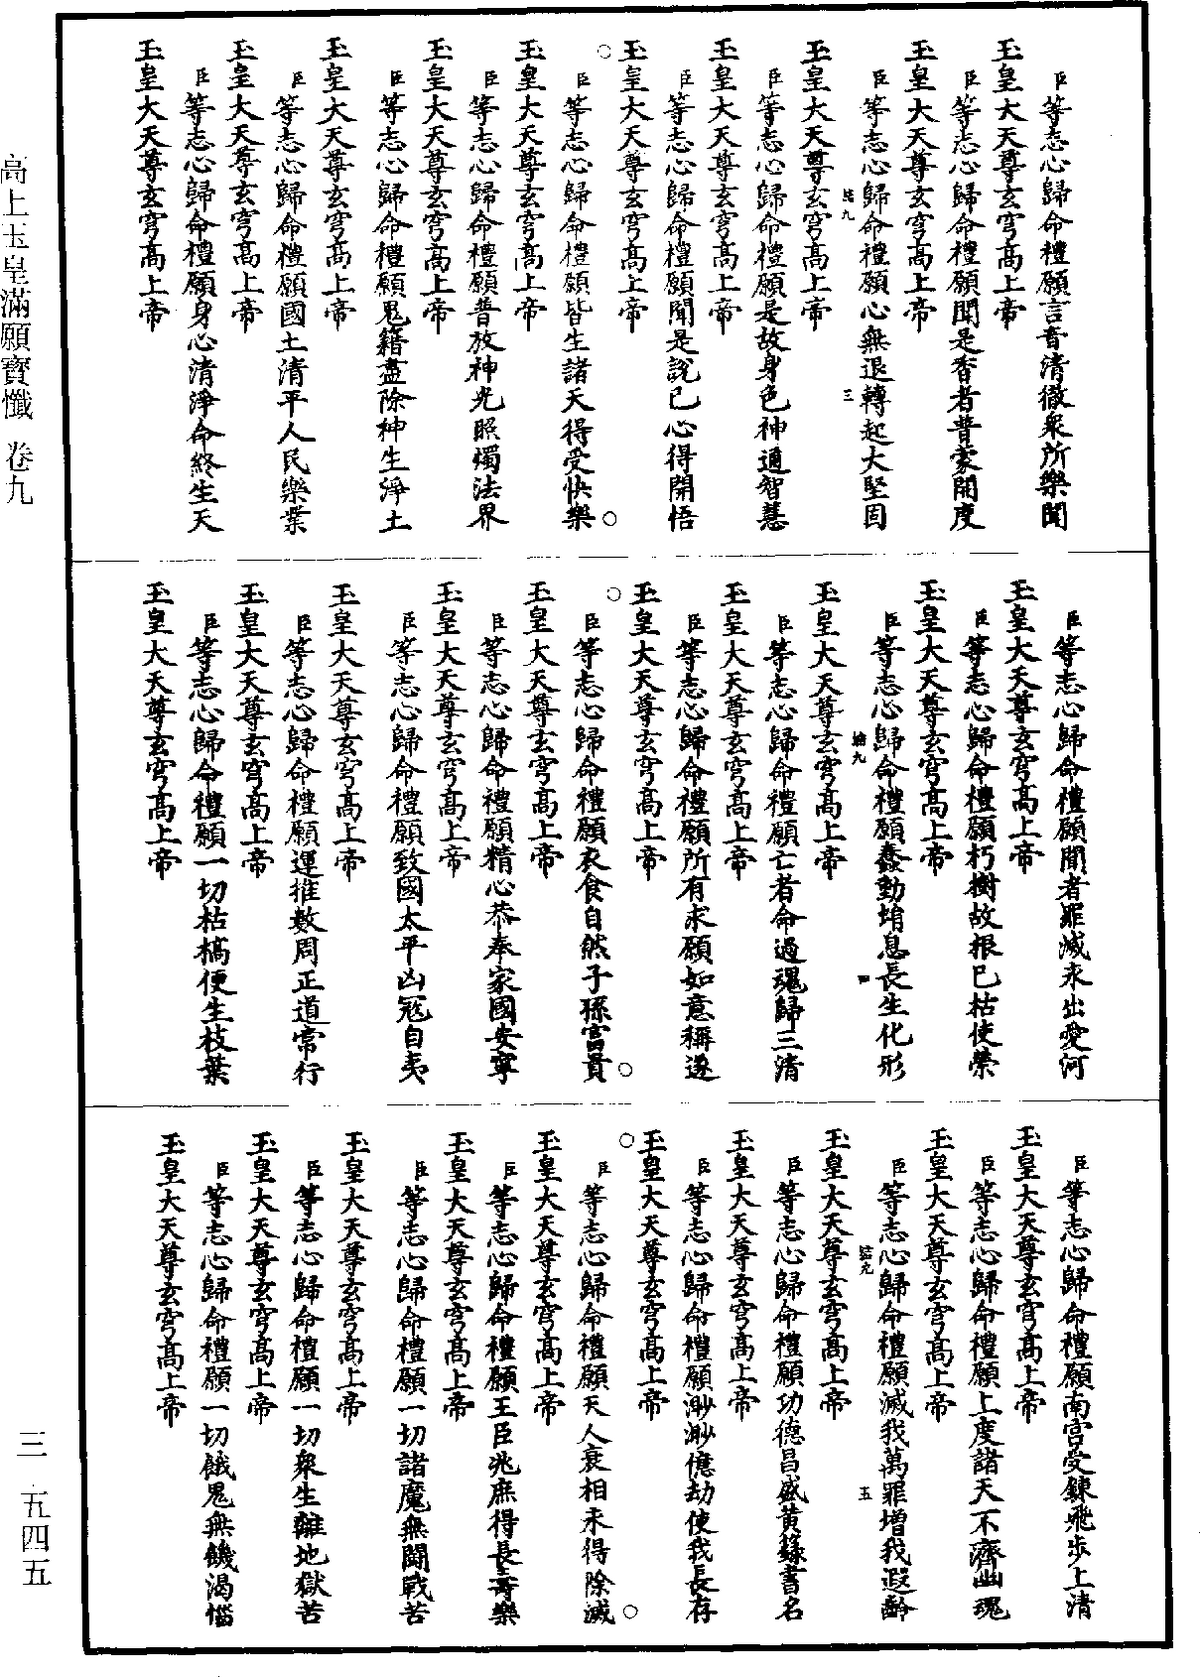 臣等志心歸命禮願言音清徹衆所樂聞
玉皇大天尊玄穹高上帝
臣等志心歸命禮願聞是香者普蒙開度
玉皇大天尊玄穹高上帝
臣等志心歸命禮願心無退轉起大堅固
結九 三
玉皇大天尊玄穹高上帝
臣等志心歸命禮願是故身色神通智慧
玉皇大天尊玄穹高上帝
臣等志心歸命禮願聞是說已心得開悟
玉皇大天尊玄穹高上帝
○臣等志心歸命禮願皆生諸天得受快樂○
玉皇大天尊玄穹高上帝
臣等志心歸命禮願普放神光照燭法界
玉皇大天尊玄穹高上帝
臣等志心歸命禮願鬼籍盡除神生淨土
玉皇大天尊玄穹高上帝
臣等志心歸命禮願國土清平人民樂業
玉皇大天尊玄穹高上帝
臣等志心歸命禮願身心清淨命終生天
玉皇大天尊玄穹高上帝
臣等志心歸命禮願聞者罪滅永出愛河
玉皇大天尊玄穹高上帝
臣等志心歸命禮願朽樹故根已枯使榮
玉皇大天尊玄穹高上帝
臣等志心歸命禮願蠢動蜎息長生化形
結九 四
玉皇大天尊玄穹高上帝
臣等志心歸命禮願亡者命過魂歸三清
玉皇大天尊玄穹高上帝
臣等志心歸命禮願所有求願如意稱遂
玉皇大天尊玄穹高上帝
○臣等志心歸命禮願衣食自然子孫富貴○
玉皇大天尊玄穹高上帝
臣等志心歸命禮願精心恭奉家國安寧
玉皇大天尊玄穹高上帝
臣等志心歸命禮願致國太平凶寇自夷
玉皇大天尊玄穹高上帝
臣等志心歸命禮願運推數周正道常行
玉皇大天尊玄穹高上帝
臣等志心歸命禮願一切枯槁便生枝葉
玉皇大天尊玄穹高上帝
臣等志心歸命禮願南宮受鍊飛步上清
玉皇大天尊玄穹高上帝
臣等志心歸命禮願上度諸天下濟幽魂
玉皇大天尊玄穹高上帝
臣等志心歸命禮願滅我萬罪增我遐齡
結九 五
玉皇大天尊玄穹高上帝
臣等志心歸命禮願功德昌盛黄籙書名
玉皇大天尊玄穹高上帝
臣等志心歸命禮願渺渺億劫使我長存
玉皇大天尊玄穹高上帝
○臣等志心歸命禮願天人衰相永得除滅○
玉皇大天尊玄穹高上帝
臣等志心歸命禮願王臣兆庶得長壽樂
玉皇大天尊玄穹高上帝
臣等志心歸命禮願一切諸魔無鬪戰苦
玉皇大天尊玄穹高上帝
臣等志心歸命禮願一切衆生離地獄苦
玉皇大天尊玄穹高上帝
臣等志心歸命禮願一切餓鬼無饑渴惱
玉皇大天尊玄穹高上帝
高上玉皇滿願寶懺 卷九
三 五四五